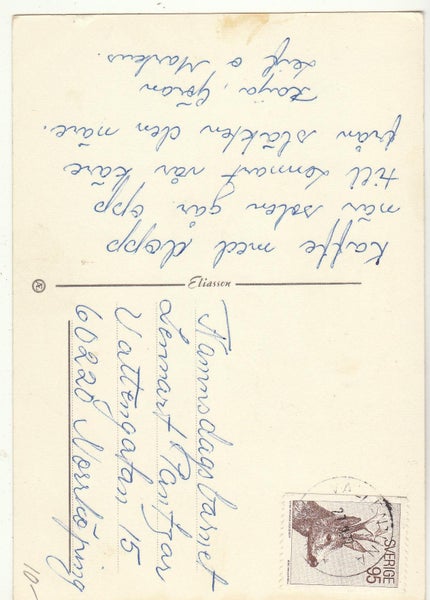 Kaffe med dopp
när solen går opp
till Lennart vår käre
från släkten den näre.
Kaija, Göran
Leif o Markus.
Eliasson
Namnsdagsbarnet
Lennart
Vattengatan 15
60220 Norrköping
SVERIGE
95
10-